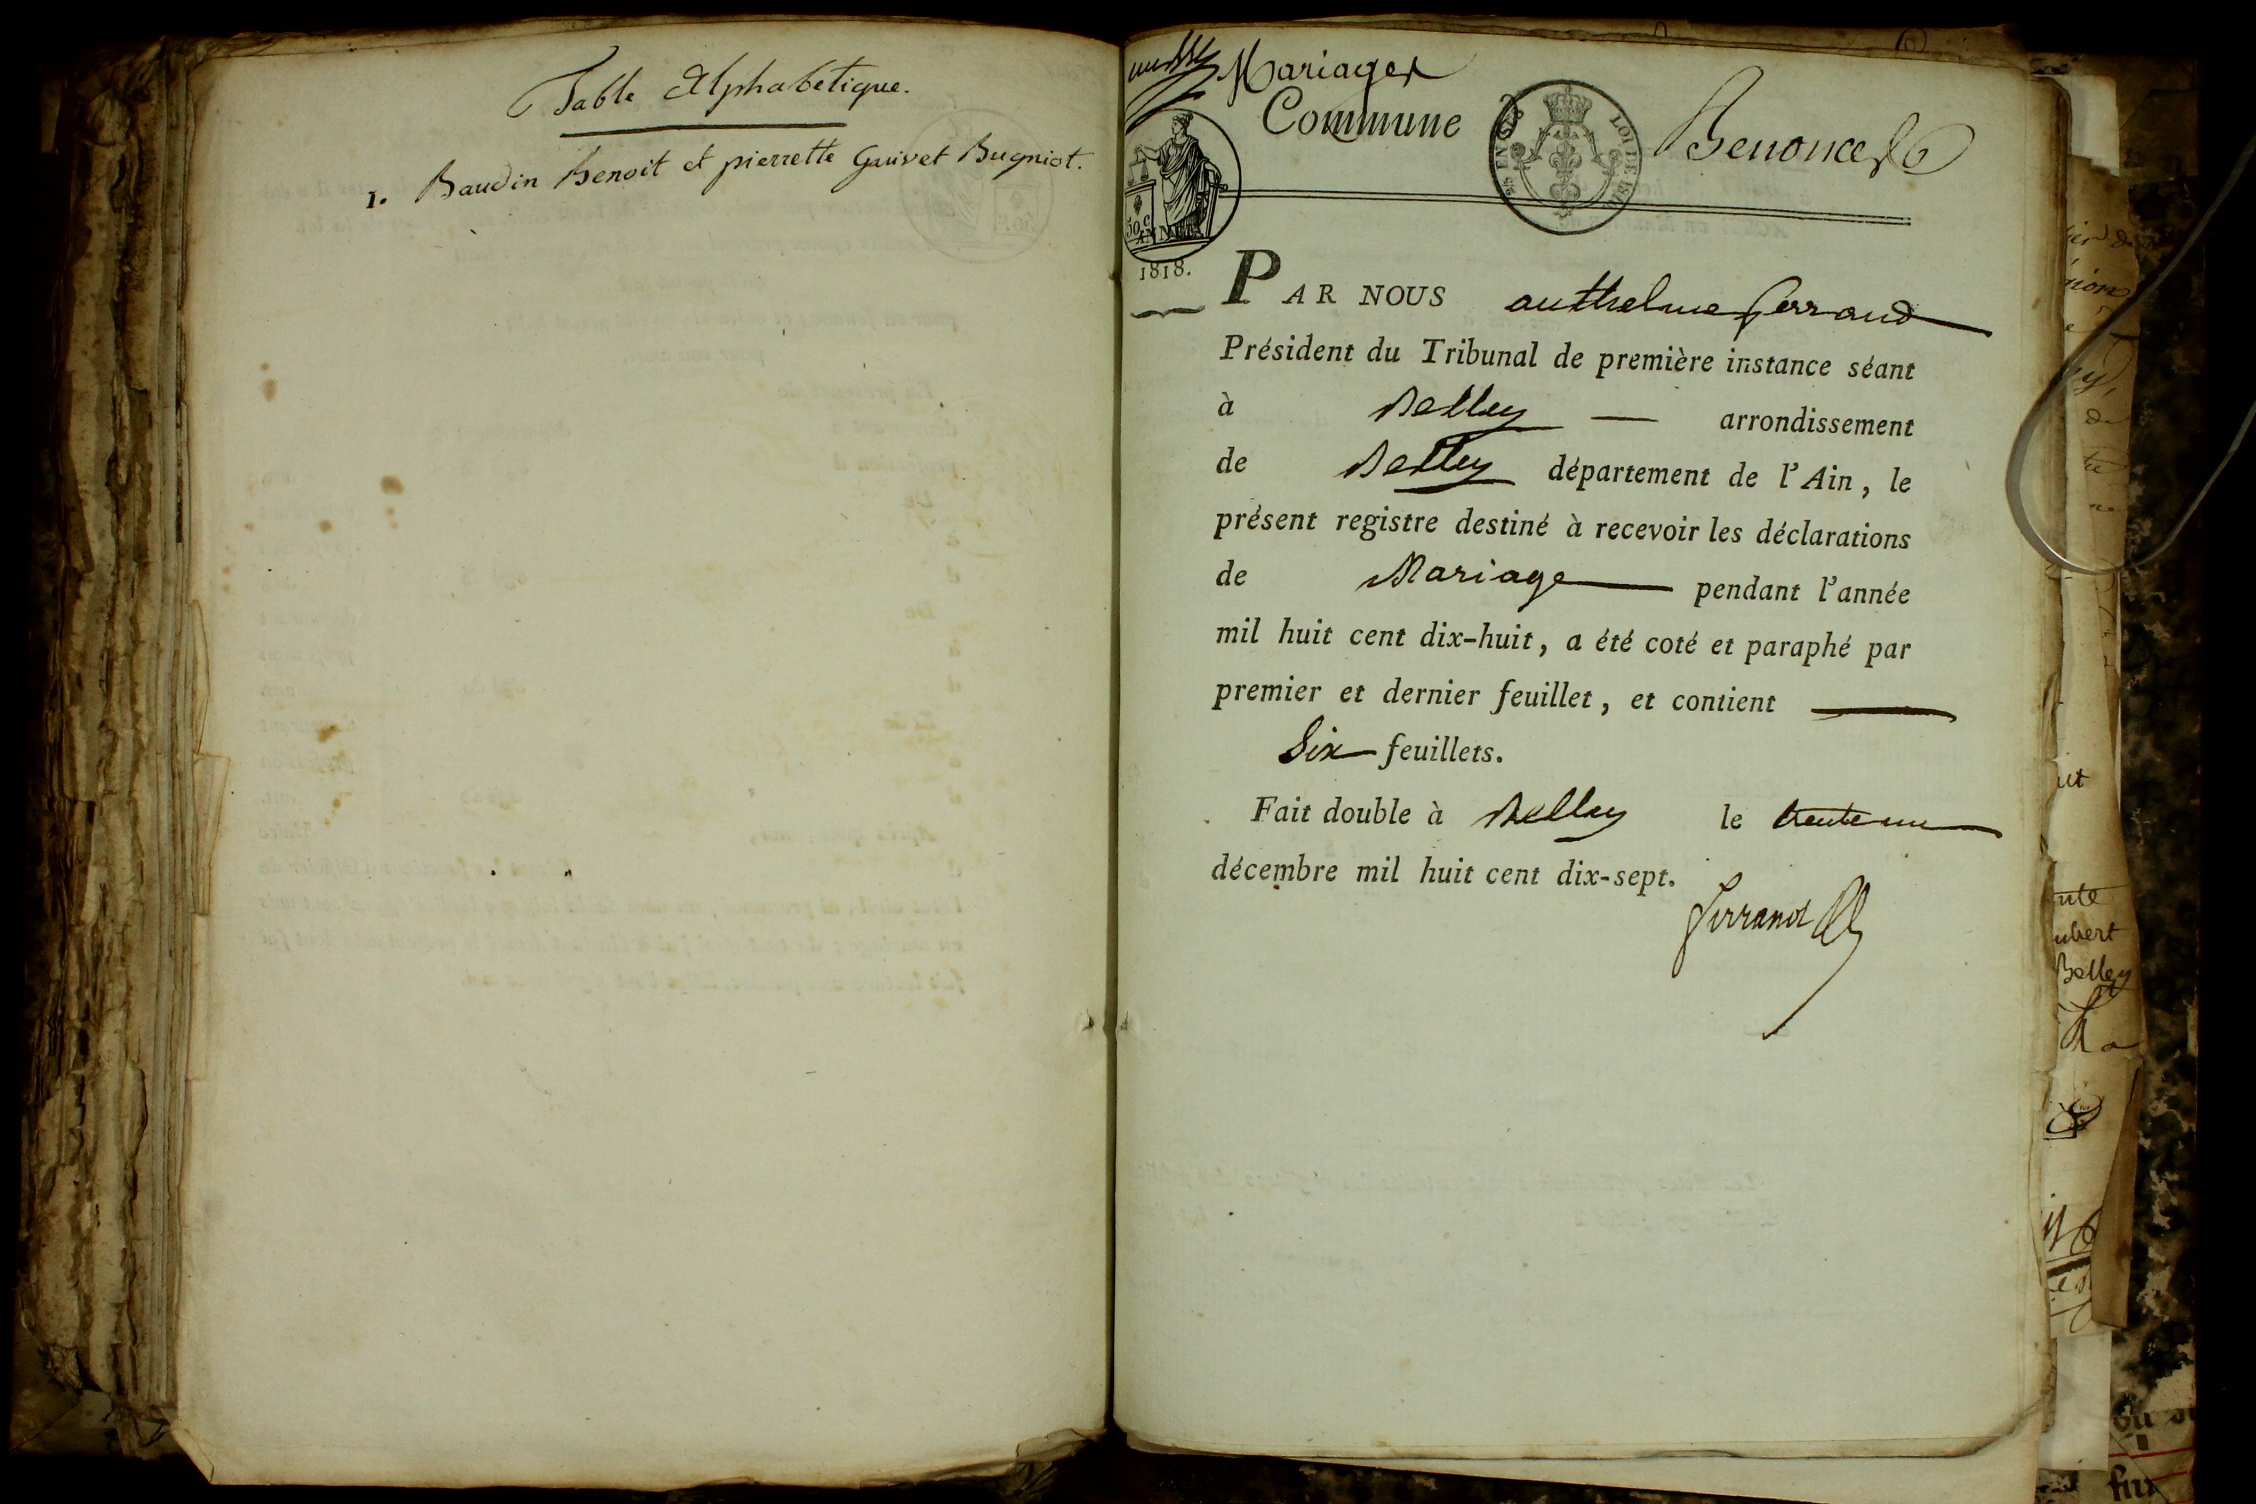 Table Alphabétique.
1. Baudin Benoit et pierrette Guivet Bugniot.
Mariages
Commune
Benonces
LOI DE 1816
50 c
1818.
PAR NOUS anthelme ferrand
Président du Tribunal de première instance séant
à Belley — arrondissement
de Belley département de l'Ain, le
présent registre destiné à recevoir les déclarations
de Mariage — pendant l'année
mil huit cent dix-huit, a été coté et paraphé par
premier et dernier feuillet, et contient —
Six feuillets.
Fait double à Belley le trente un
décembre mil huit cent dix-sept.
ferrand
ubert
Belley